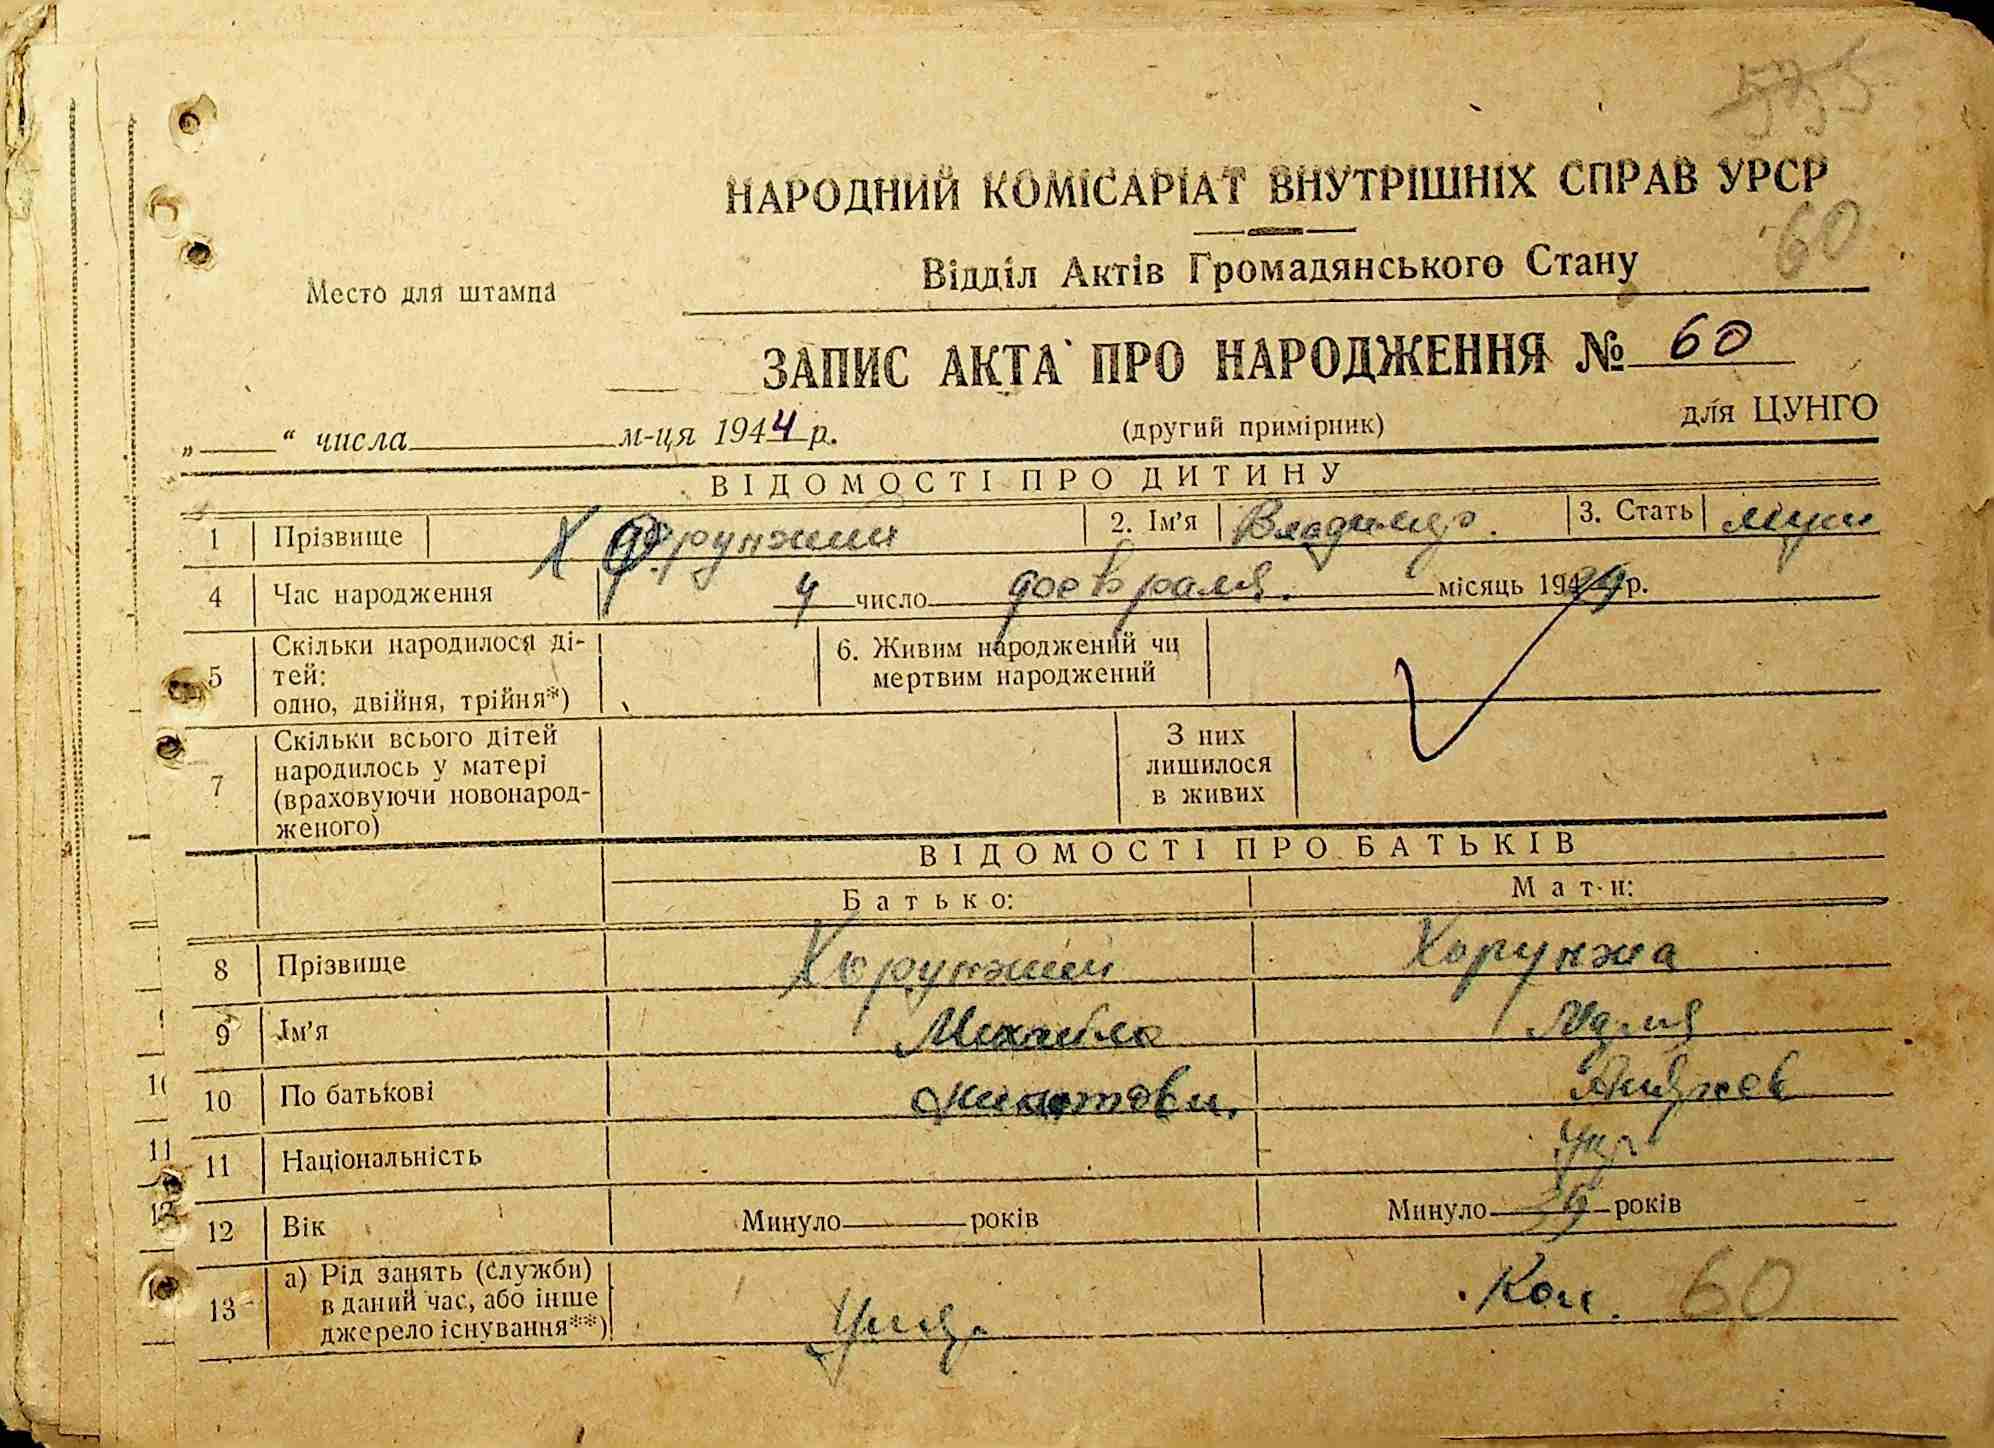 535
НАРОДНИЙ КОМІСАРІАТ ВНУТРІШНІХ СПРАВ УРСР
60
Відділ Актів Громадянського Стану
Место для штампа
ЗАПИС АКТА ПРО НАРОДЖЕННЯ № 60
„ “ числа м-ця 1944 р. (другий примірник) для ЦУНГО
ВІДОМОСТІ ПРО ДИТИНУ
1 Прізвище Хорунжий 2. Ім’я Владимир. 3. Стать муж
4 Час народження 4 число февраля. місяць 1944 р.
5 Скільки народилося ді-
тей:
одно, двійня, трійня*)
6. Живим народжений чи
мертвим народжений
7 Скільки всього дітей
народилось у матері
(враховуючи новонарод-
женого)
З них
лишилося
в живих
ВІДОМОСТІ ПРО БАТЬКІВ
Батько: Мати:
8 Прізвище Хорунжий Хорунжа
9 Ім’я Михайло Мария
10 По батькові
11 Національність Укр
12 Вік Минуло років Минуло років
13 а) Рід занять (служби)
в даний час, або інше
джерело існування**)
Кол. 60
10
11
12